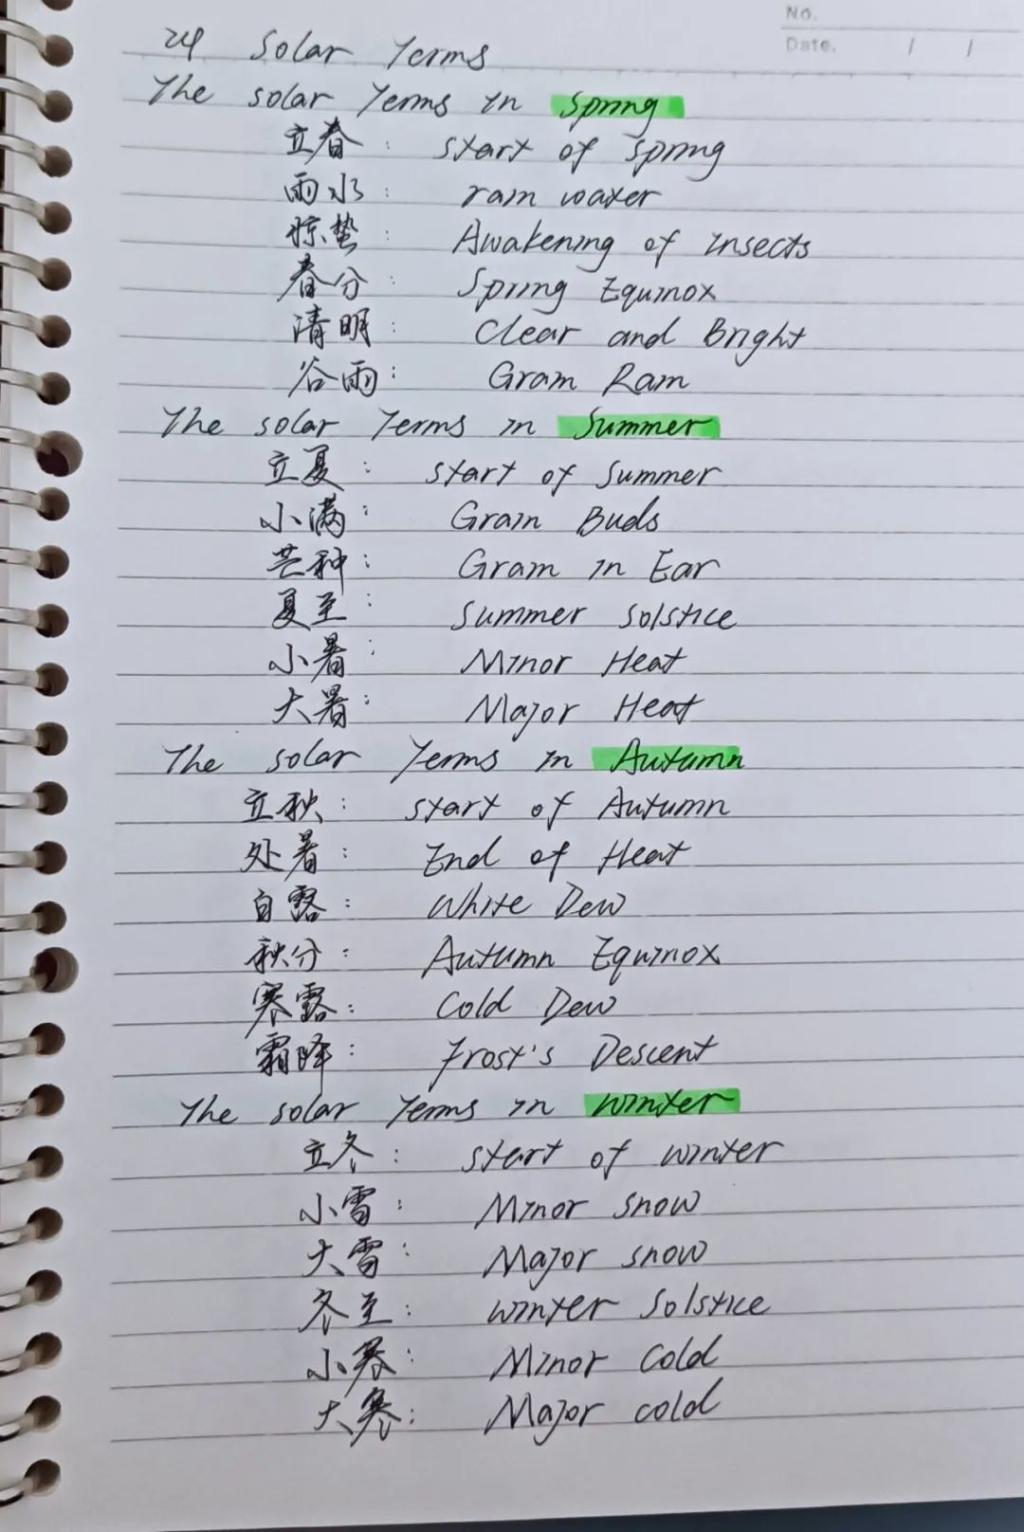 No.
Date. / /
24 Solar Terms
The solar Terms in Spring
立春: start of spring
雨水: rain water
惊蛰: Awakening of Insects
春分: Spring Equinox
清明: Clear and Bright
谷雨: Grain Rain
The solar Terms in Summer
立夏: start of Summer
小满: Grain Buds
芒种: Grain in Ear
夏至: Summer Solstice
小暑: Minor Heat
大暑: Major Heat
The solar Terms in Autumn
立秋: start of Autumn
处暑: End of Heat
白露: White Dew
秋分: Autumn Equinox
寒露: Cold Dew
霜降: Frost's Descent
The solar Terms in winter
立冬: start of winter
小雪: Minor snow
大雪: Major snow
冬至: winter Solstice
小寒: Minor Cold
大寒: Major cold